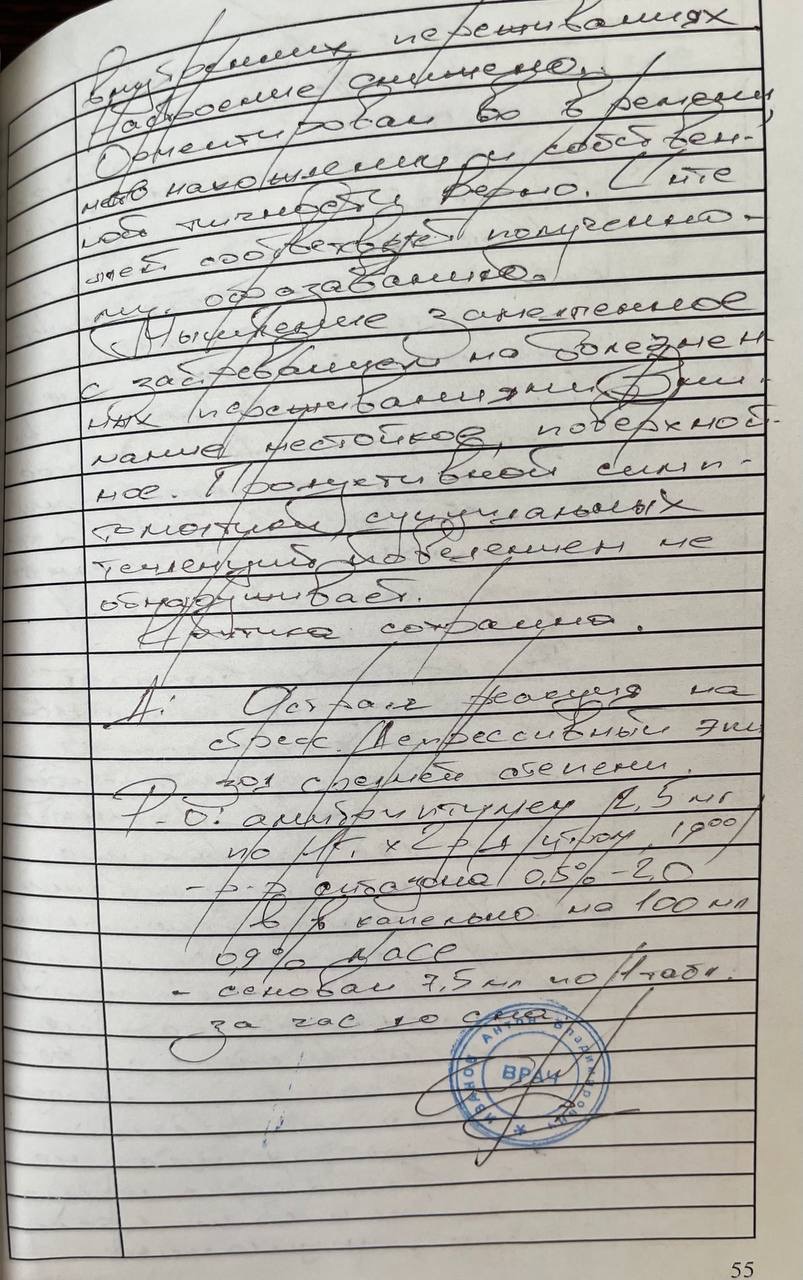 внутренних переживаниях
Настроение снижено.
Ориентирован во времени,
месте нахождении и собствен-
ной личности верно. Инте
ллект соответствует полученно-
му образованию.
Мышление замедленное
с застреванием на болезнен-
ных переживаниях. Вни-
мание нестойкое, поверхност-
ное. Продуктивной симп-
томатики, суицидальных
тенденций поведением не
обнаруживает.
Критика сохранна.
Д: Острая реакция на
стресс. Депрессивный эпи
зод средней степени.
Р-о: амитриптилин 12,5 мг
по 1т. х 2р/д утром, 19⁰⁰
- р-р 0,5% - 2,0
в/в капельно на 100 мл
0,9% NaCl
- сонован 7,5 мг по 1 табл.
за час до сна
Иванов Антон Владимирович
ВРАЧ
55